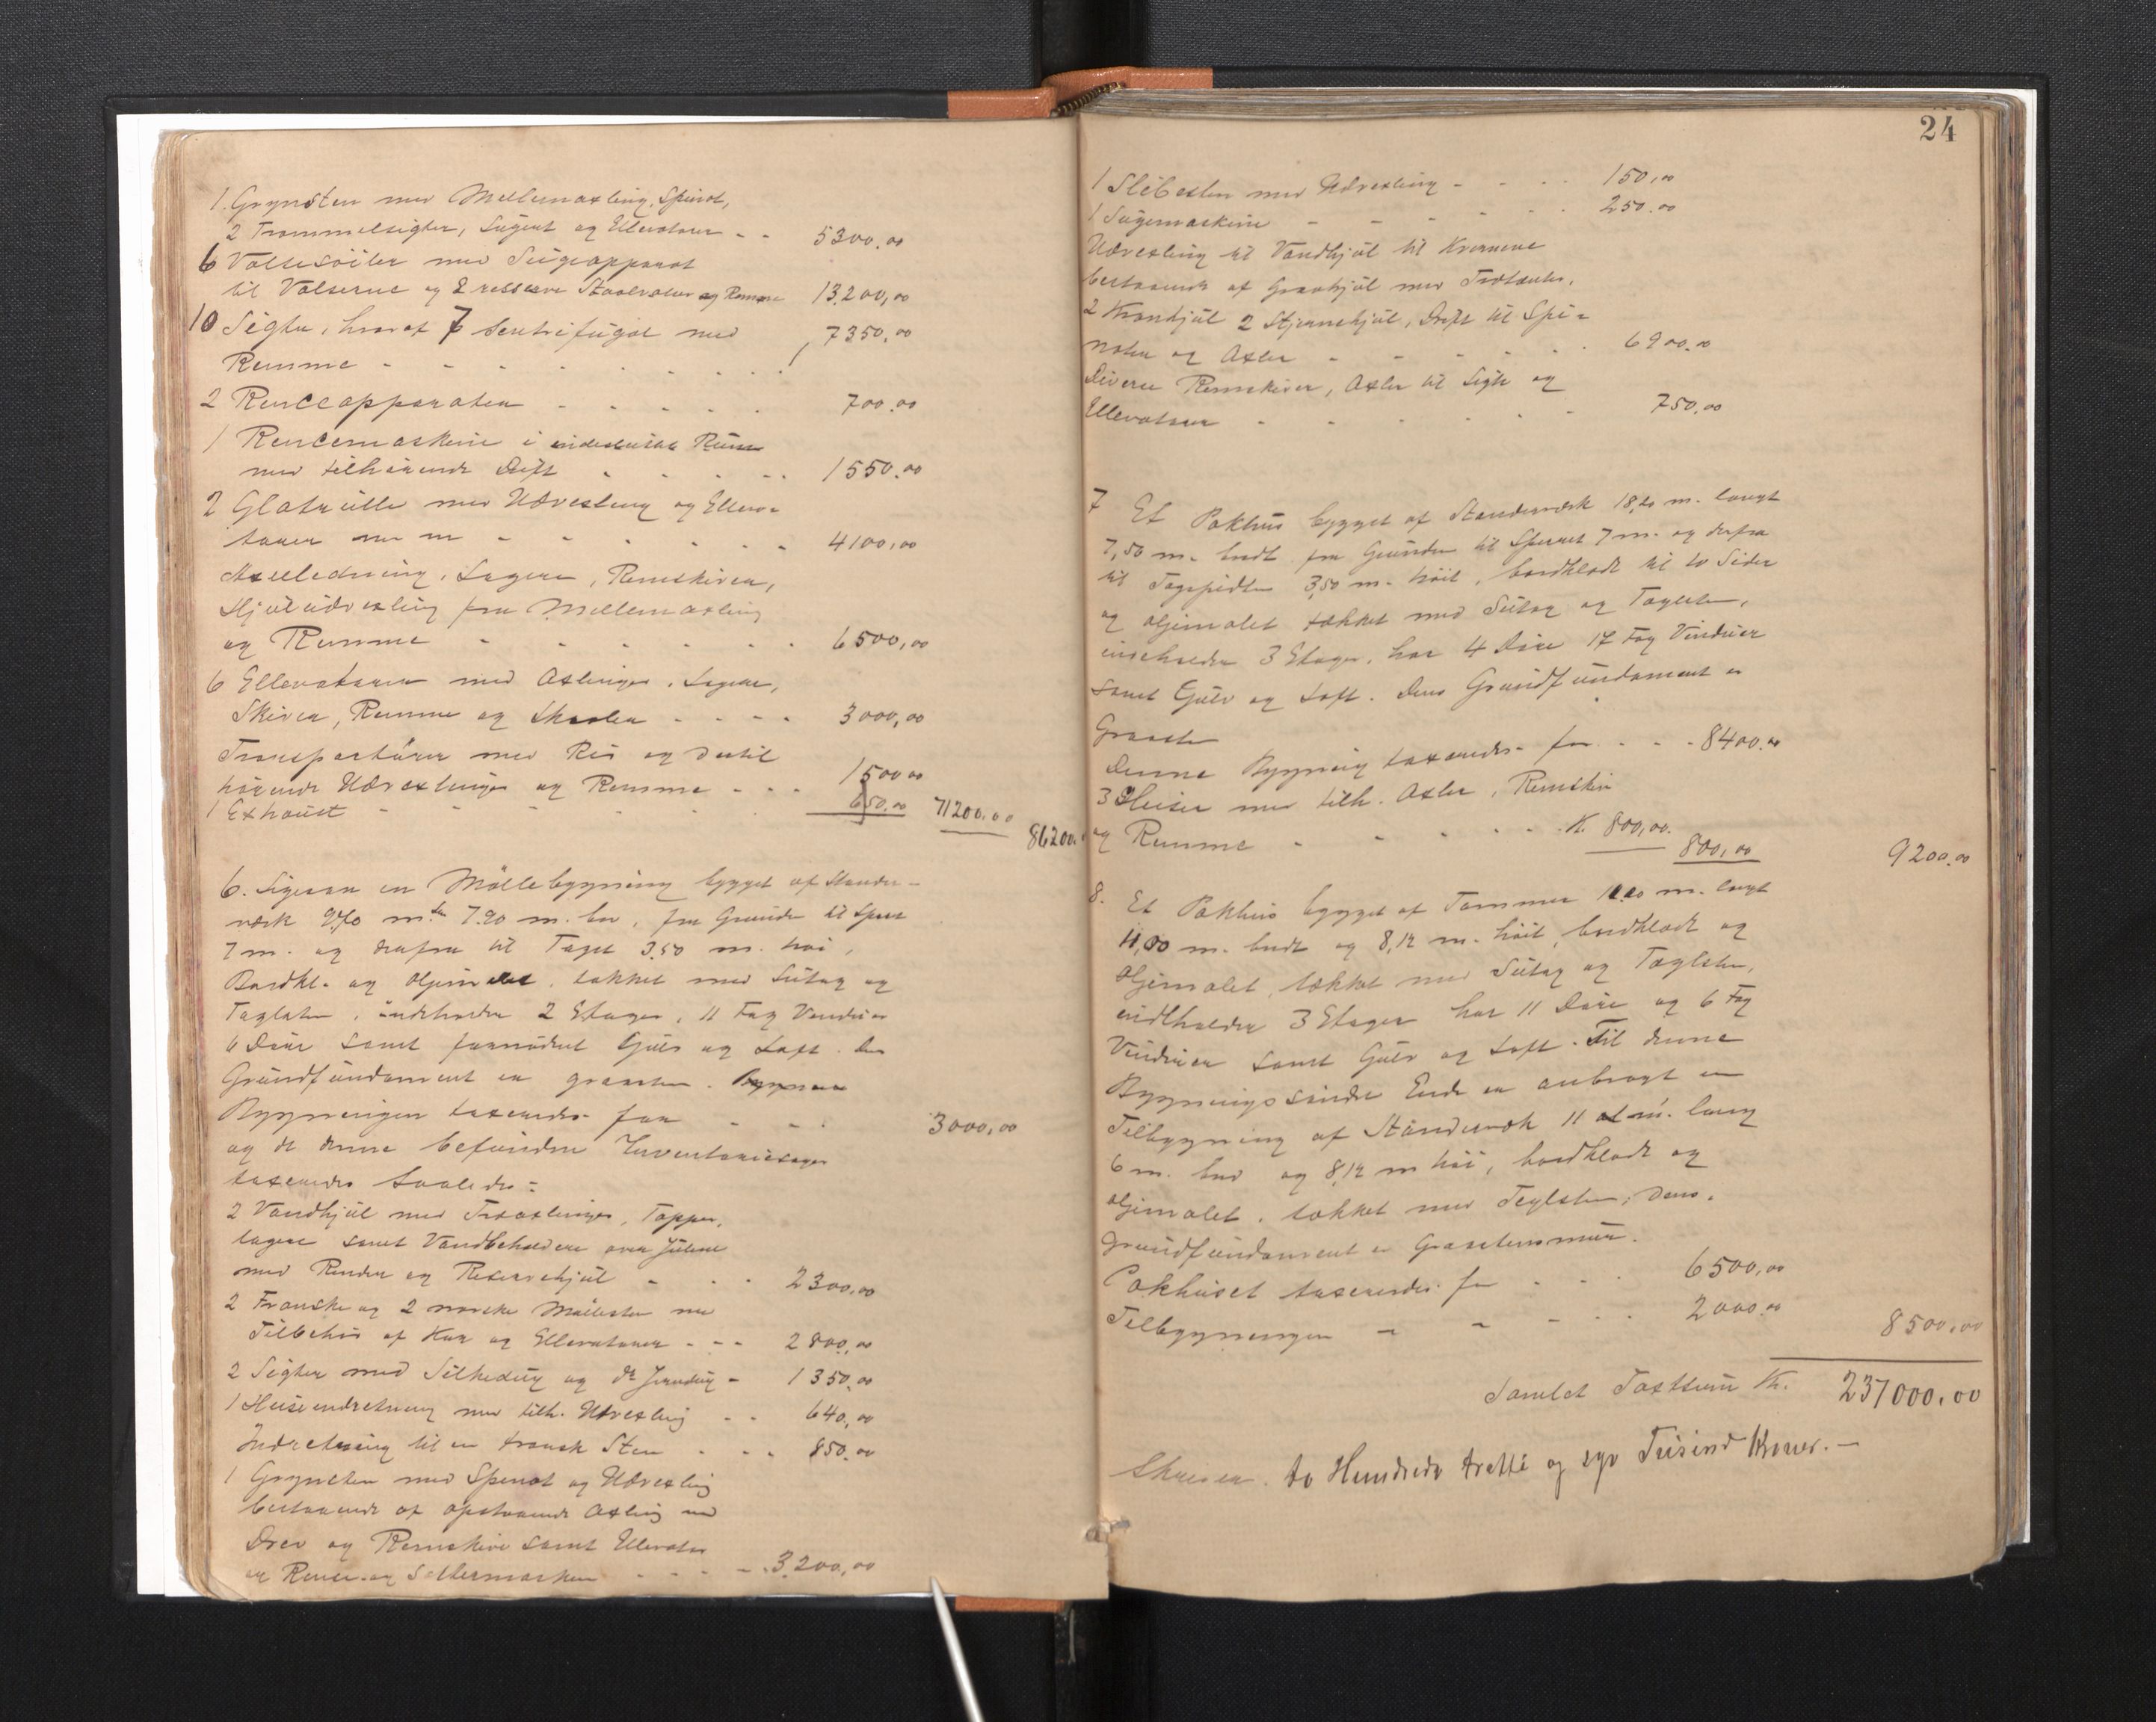 1. Grynsten med Mellemaxling, Spinat,
2 Trommelsigter, Sugeat og Ellevatorer - - 5300.00
6 Valsestöiler med Sugeapparat
til Valserne og 2 reserve Staalvalser og Remme 13,200,00
10 Sigter, hvoraf 7 Sentrifugal med 7350.00
Remme - - - - - -
2 Renseapparater - - - - - 700.00
1 Rensemaskine i
med tilhörende Drift - - - - 1550.00
2 Glatmölle med Udvexling og Elleva=
torer - - - - - 4100,00
Axelledning, Lagere, Remskiver,
Hjuludvexling fra Mellemaxling
og Remme - - - - - 6500,00
6 Ellevatorer med Axlinger, Lagere,
Skiver, Remme og Skaaler - - - - 3000,00
Transportörer med Rör og dertil
hörende Udvexlinger og Remme - - - 1500.00
1 Exhoust - - - - - 650.00 71200.00
86200.
6. Ligesaa en Möllebygning bygget af Stander-
værk 9,70 m. 7.90 m. br., fra Grunden til Sperr
7 m. og derfra til Taget 3.50 m. höi,
Bordkl. og oljemalet, tækket med Sutag og
Taglsten, indeholder 2 Etager, 11 Fag Vinduer
6 Döre samt fornödent Gulv og Loft. Dens
Grundfundament er graasten.
Bygningen taxeredes for - - - 3000,00
og de denne befundne Inventariesager
taxeredes saaledes:
2 Vandhjul med Træaxlinger, Tapper,
lagere samt Vandbeholdere over Julene
med Render og Reservehjul - - - 2300.00
2 Franske og 2 norske Möllesten med
Tilbehör af Kar og Ellevatorer - - - 2800,00
2 Sigter med Silkedug og do Jerndug - 1350.00
1 Heiseindretning med tilh. Udvexling - - 640,00
Indretning til en fransk Sten - - - 850.00
1 Grynsten med Spinat og Udvexling
bestaaende af opstaaende Axling med
Drev og Remskive samt Ellevator
og Rense- og Sollermaskin - - - - 3,200,00
24
1 Slibesten med Udvexling - - - - 150,00
1 Sugemaskine - - - - - 250.00
Udvexling til Vandhjul til Kvernene
bestaaende af Gravhjul med Trætænder,
2 Kronhjul 2 Stjernehjul, Drift til Spi=
nater og Axler - - - - - 6900.00
Diverse Remskiver, Axler til Sigte og
Ellevatorer - - - - - 750.00
7 Et Pakhus bygget af Standerværk 18,20 m. langt
7,50 m. bredt fra Grunden til Sperret 7 m. og derfra
til Tagspidsen 3,50 m. höit, bordklædt til to Sider
og oljemalet tækket med Sutag og Taglsten,
indeholder 3 Etager, har 4 Döre 17 Fag Vinduer
samt Gulv og Loft. Dens Grundfundament er
Graasten
Denne Bygning taxeredes for - - - 8400.00
3 Heiser med tilh. Axler, Remskiver
og Remme - - - - - Kr. 800,00.
800,00 9200.00
8. Et Pakhus bygget af Tömmer m. langt
11,00 m. bredt og 8,12 m. höit, bordklædt og
oljemalet, tækket med Sutag og Taglsten,
indeholder 3 Etager har 11 Döre og 6 Fag
Vinduer samt Gulv og Loft. Til denne
Bygnings söndre Ende er anbragt en
Tilbygning af Standerværk 11 m. lang
6 m. bred og 8,12 m höi, bordklædt og
oljemalet, tækket med Teglsten, Dens
Grundfundament er Graastensmur.
Pakhuset taxeredes for - - - 6500,00
Tilbygningen - - - - 2000.00
8500,00
Samlet Taxtsum Kr. 237000.00
Skriver. to Hundrede tretti og syv Tusind Kroner. -